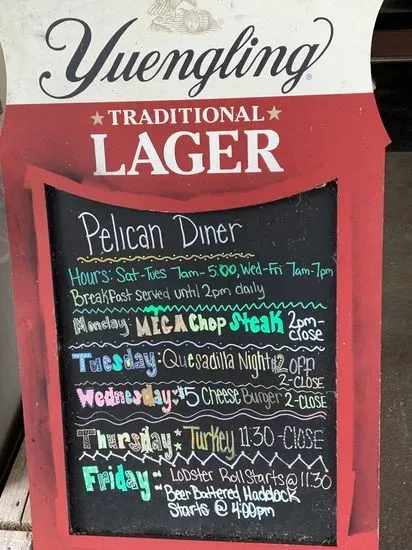 Yuengling
TRADITIONAL
LAGER
Pelican Diner
Hours: Sat-Tues 7am-5:00, Wed-Fri 7am-7pm
Breakfast served until 2pm daily
Monday: MEGA Chop Steak 2pm-close
Tuesday: Quesadilla Night $2 OFF 2-CLOSE
Wednesday: $5 Cheese Burger 2-CLOSE
Thursday: Turkey 11:30-CLOSE
Friday- Lobster Roll Starts @ 11:30
Beer Battered Haddock
Starts @ 4:00pm